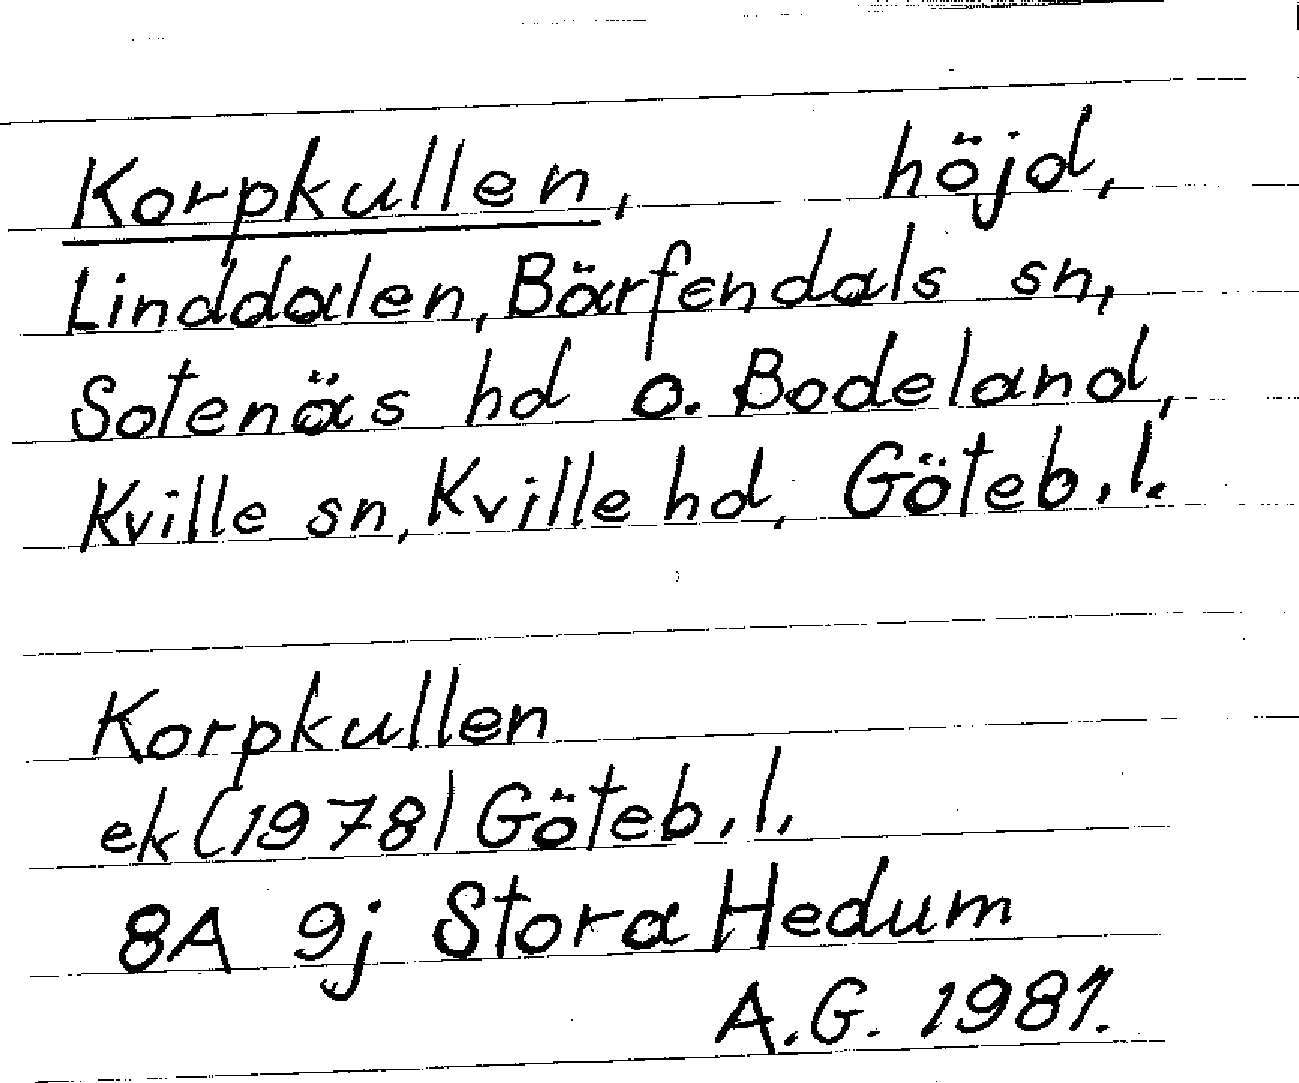 Korpkullen, höjd,
Linddalen, Bärfendals sn,
Sotenäs hd o. Bodeland,
Kville sn, Kville hd, Göteb. l.
Korpkullen
ek (1978) Göteb. l.
8A 9j Stora Hedum
A.G. 1981.